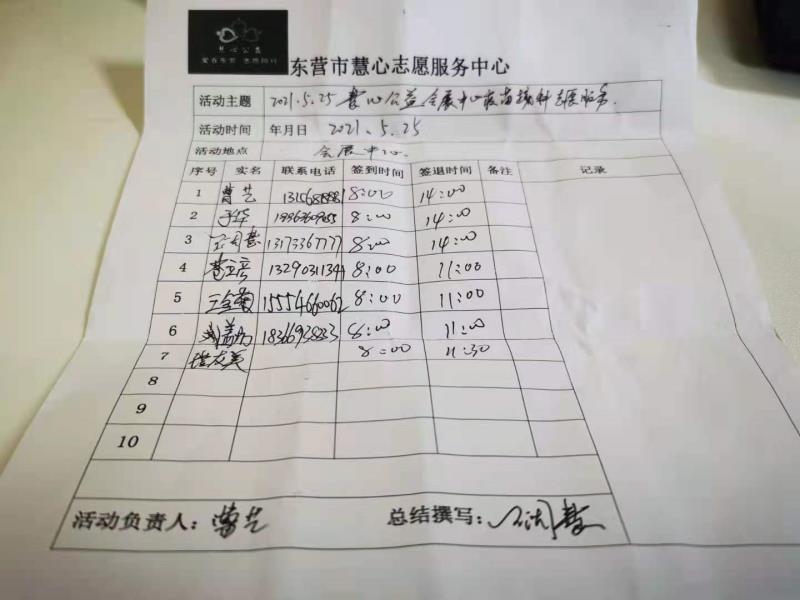 慧心公益
东营市慧心志愿服务中心
活动主题 2021.5.25 慧心公益会展中心疫苗接种志愿服务.
活动时间 年月日 2021.5.25
活动地点 会展中心.
序号 实名 联系电话 签到时间 签退时间 备注 记录
1 曹艺 8:00 14:00
2 于华 8:00 14:00
3 13173367777 8:00 14:00
4 13290311344 8:00 11:00
5 15554660062 8:00 11:00
6 8:00 11:00
7 8:00 11:30
8
9
10
活动负责人: 曹艺 总结撰写: